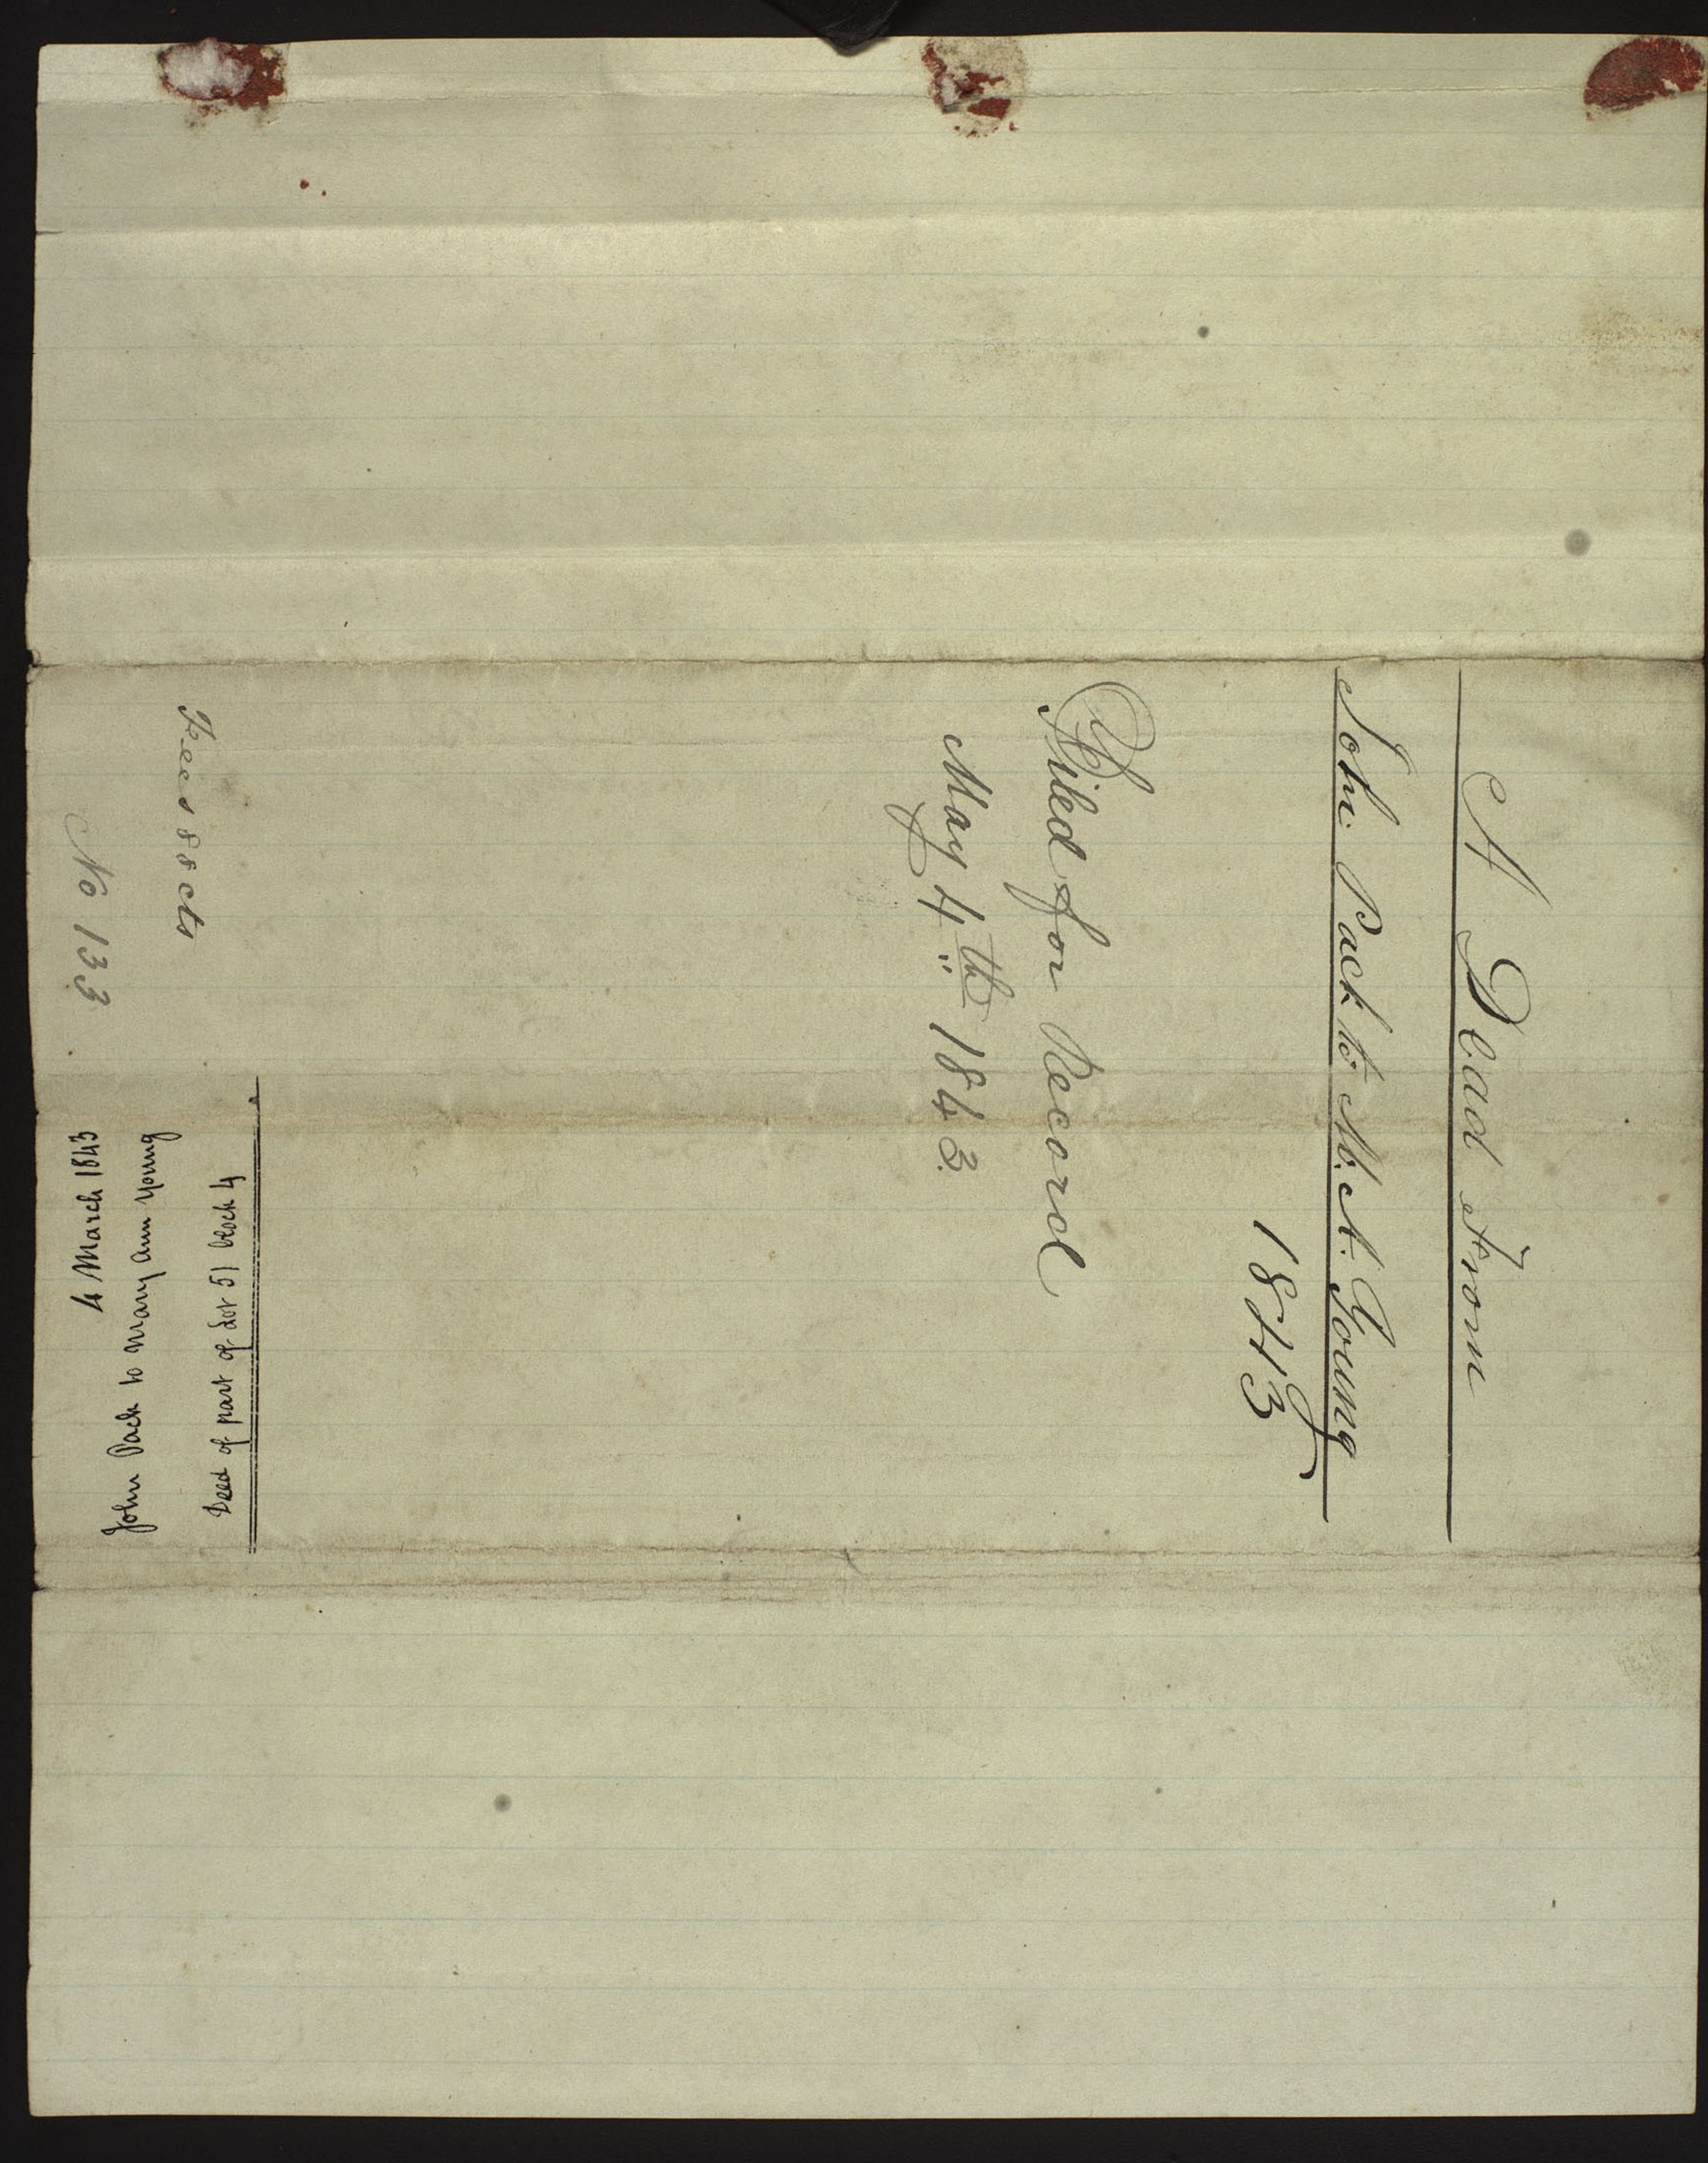 A Dead From
John Pack to M. A. Young
1843
Filed for Record
May 4th 1843
Fees 88 cts
No 133
4 March 1843
John Pack to Mary Ann Young
Deed of part of Lot 51 block 4